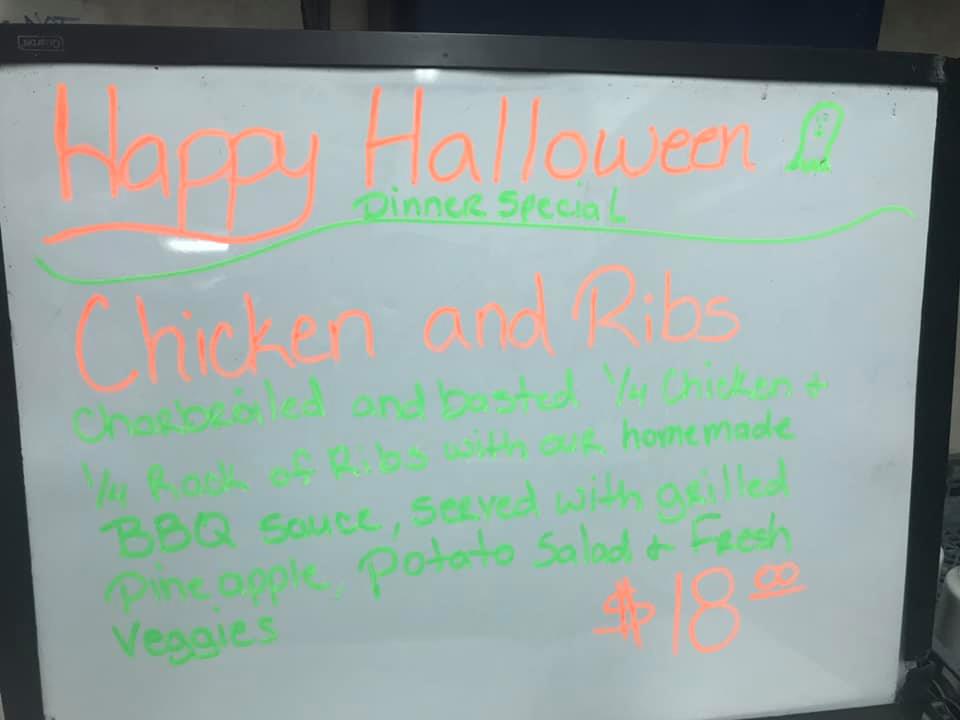 Quartet
Happy Halloween
Dinner Special
Chicken and Ribs
Charbroiled and basted 1/4 Chicken +
1/4 Rack of Ribs with our homemade
BBQ sauce, served with grilled
Pineapple, Potato Salad + Fresh
Veggies
$18.00